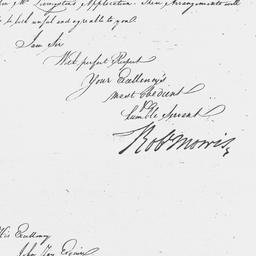 Mr. Livingston's Application. These Arrangements will
be both useful and agreeable to you.
I am Sir
With perfect Respect
Your Excellency's
most Obedient
&
humble Servant
Robt Morris
His Excellency
John Jay Esquire